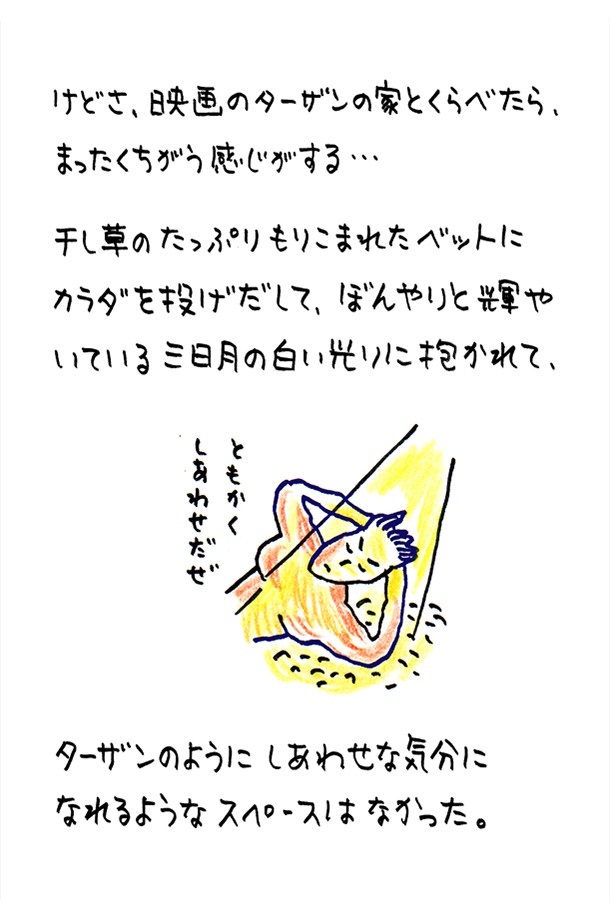 けどさ、映画のターザンの家とくらべたら、
まったくちがう感じがする…
干し草のたっぷりもりこまれたベットに
カラダを投げだして、ぼんやりと輝や
いている三日月の白い光りに抱かれて、
ともかく
しあわせだぜ
ターザンのようにしあわせな気分に
なれるようなスペースはなかった。